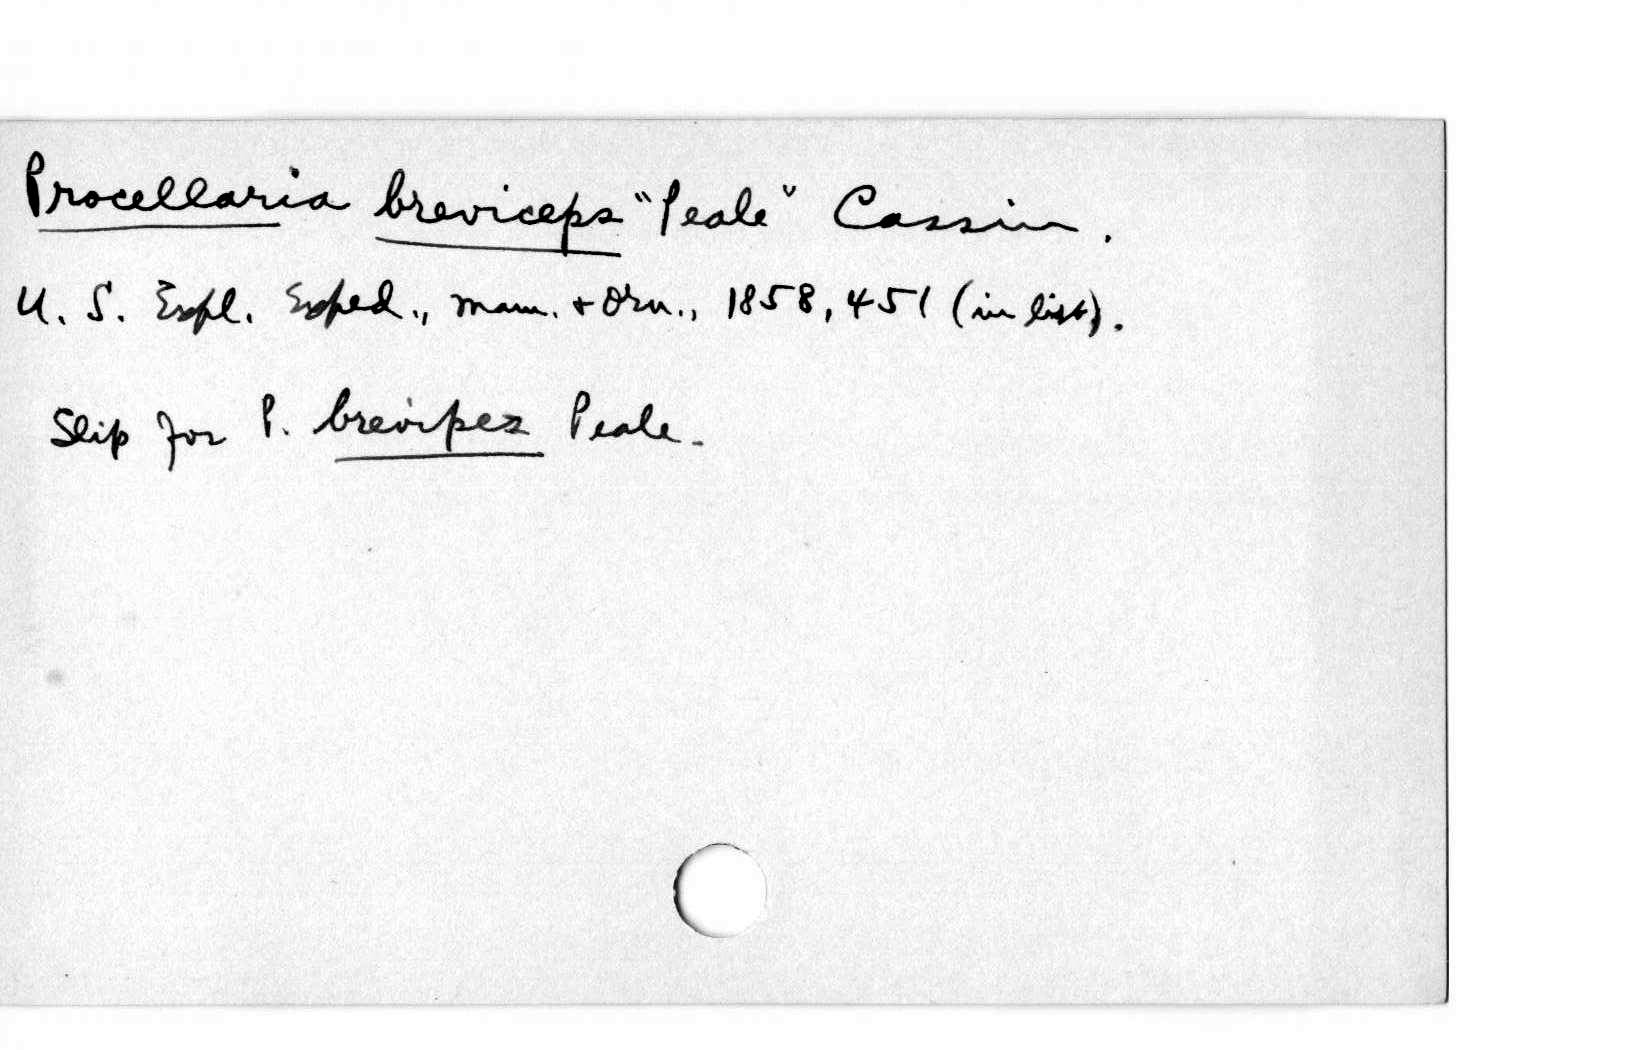 Procellaria breviceps "Peale" Cassin.
U. S. Expl. Exped., Mam. + Orn., 1858, 451 (in list).
Slip for P. brevipes Peale.